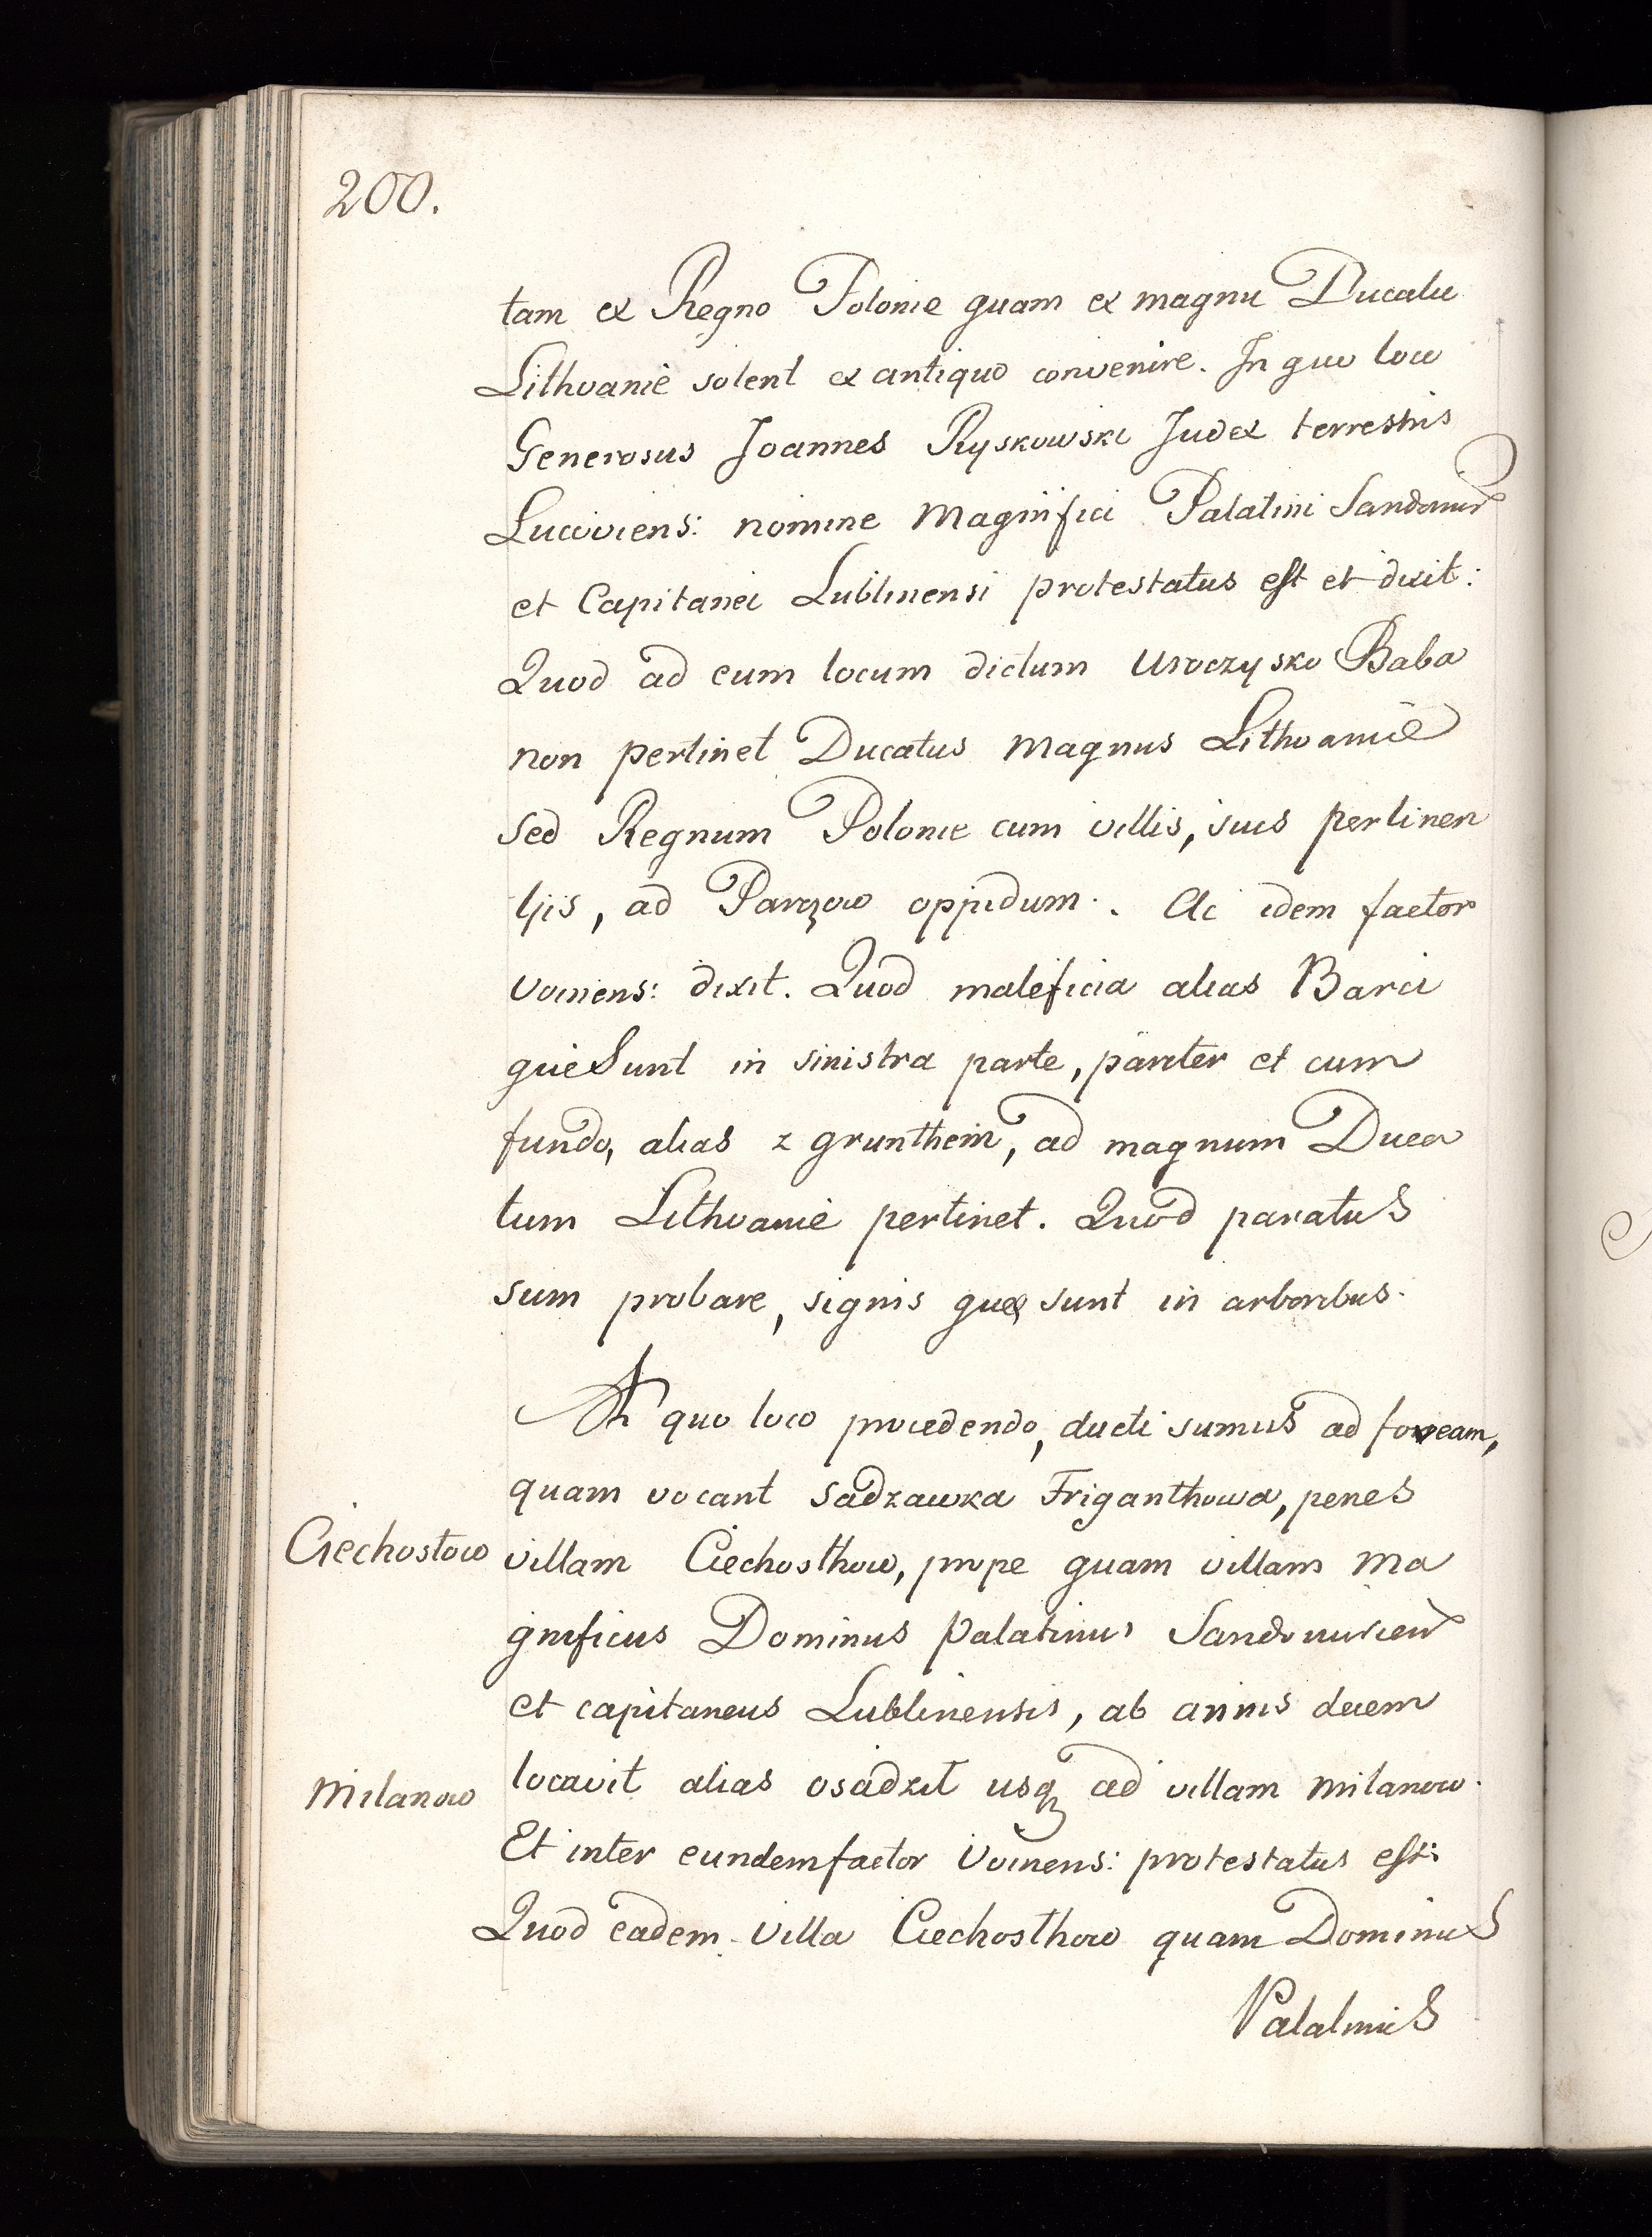 200.
tam ex Regno Polonie quam ex magnu Ducatu
Lithvanie solent ex antiquo convenire. In quo loco
Generosus Joannes Ryskowski Judex terrestris
Lucoviens: nomine Magnifici Palatini Sandomir
et Capitanei Lublinensi protestatus est et dixit:
Quod ad eum locum dictum Uroczysko Baba
non pertinet Ducatus Magnus Lithvanie
sed Regnum Polonie cum villis, suis pertinen
tjis, ad Parczow oppidum. Ac idem factor
Voinens: dixit. Quod maleficia alias Barci
que Sunt in sinistra parte, pariter et cum
fundo, alias z grunthem, ad magnum Duca
tum Lithvanie pertinet. Quod paratus
sum probare, signis que sunt in arboribus.
A quo loco procedendo, ducti sumus ad foveam,
quam vocant Sadzawka Friganthowa, penes
Ciechostow
villam Ciechosthow, prope quam villam Ma
gnificus Dominus Palatinus Sandomirien
et capitaneus Lublinensis, ab annis decem
Milanow
locavit alias osadzil usq ad villam Milanow.
Et inter eundem factor Voinens: protestatus est:
Quod eadem villa Ciechosthow quam Dominus
Palatinus